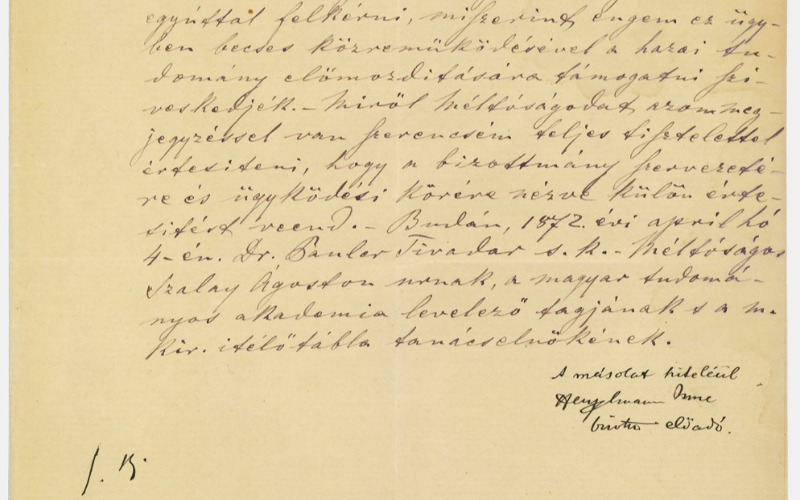 egyúttal felkérni, miszerint engem ez ügy-
ben becses közremüködésével a hazai tu-
domány előmozditására támogatni szi-
veskedjék. – Miről Méltóságodat azon meg-
jegyzéssel van szerencsém teljes tisztelettel
értesiteni, hogy a bizottmány szervezeté-
re és ügyködési körére nézve külön érte-
sitést veend. – Budán, 1872. évi april hó
4-én. Dr. Pauler Tivadar s. k. – Méltóságos
Szalay Ágoston urnak, a magyar tudomá-
nyos akademia levelező tagjának s a m.
kir. itélőtábla tanácselnökének.
A másolat hiteléül
Henszlmann Imre
előadó.